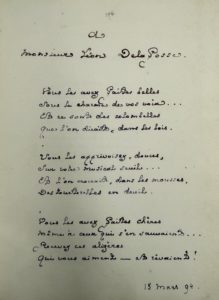 A
Monsieur Léon Delafosse.
Vous les avez faites belles
Sous le charme de vos voix...
Et ce sont des colombelles
Que l'on dirait, dans les bois.
Vous les apprivoisez, douces,
Sur votre musical seuil...
Et l'on dans les mousses,
Des tourterelles en deuil.
Vous les avez faites chères
Même à ceux qui s'en sauvaient...
ces aligères
Qui vous aiment — et rêvaient!
15 Mars 94.